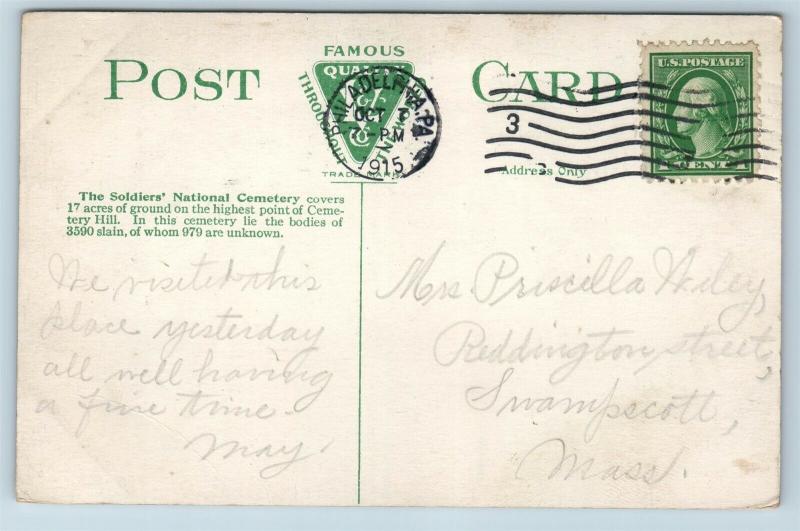 POST CARD
FAMOUS
QUALITY
THROUGHOUT
TRADE MARK
PHILADELPHIA, PA.
OCT 7
7-PM
1915
3
U.S. POSTAGE
1 CENT 1
Address Only
The Soldiers' National Cemetery covers
17 acres of ground on the highest point of Ceme-
tery Hill. In this cemetery lie the bodies of
3590 slain, of whom 979 are unknown.
We visited this
place yesterday
all well having
a fine time.
May.
Mrs. Priscilla Wiley,
Reddington street,
Swampscott,
Mass.